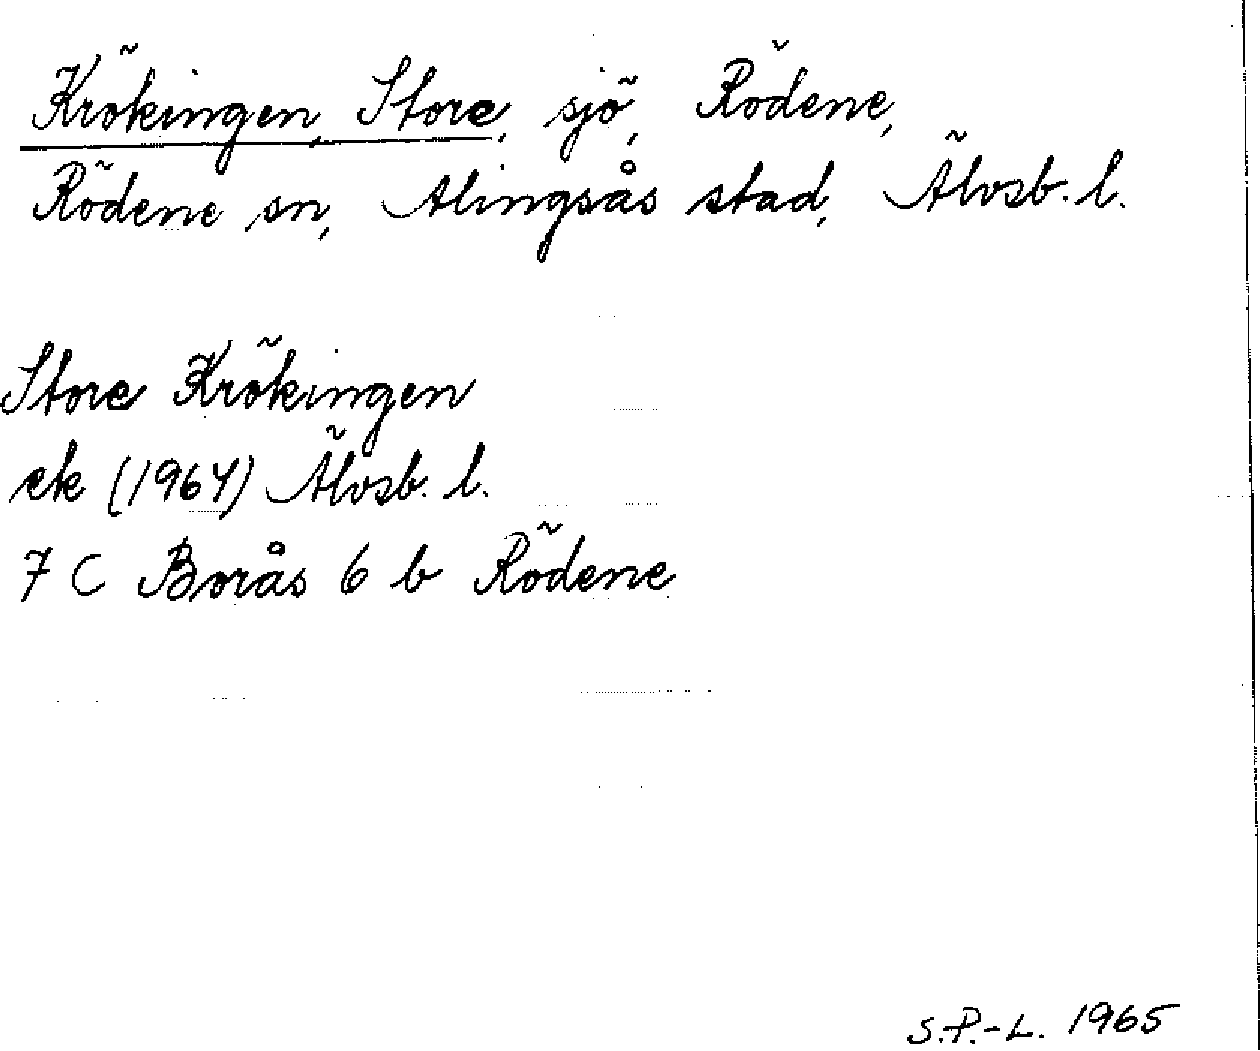 Krökingen, Store, sjö, Rödene,
Rödene sn, Alingsås stad, Älvsb. l.
Store Krökingen
ek (1964) Älvsb. l.
7 C Borås 6 b Rödene
S.P.-L. 1965